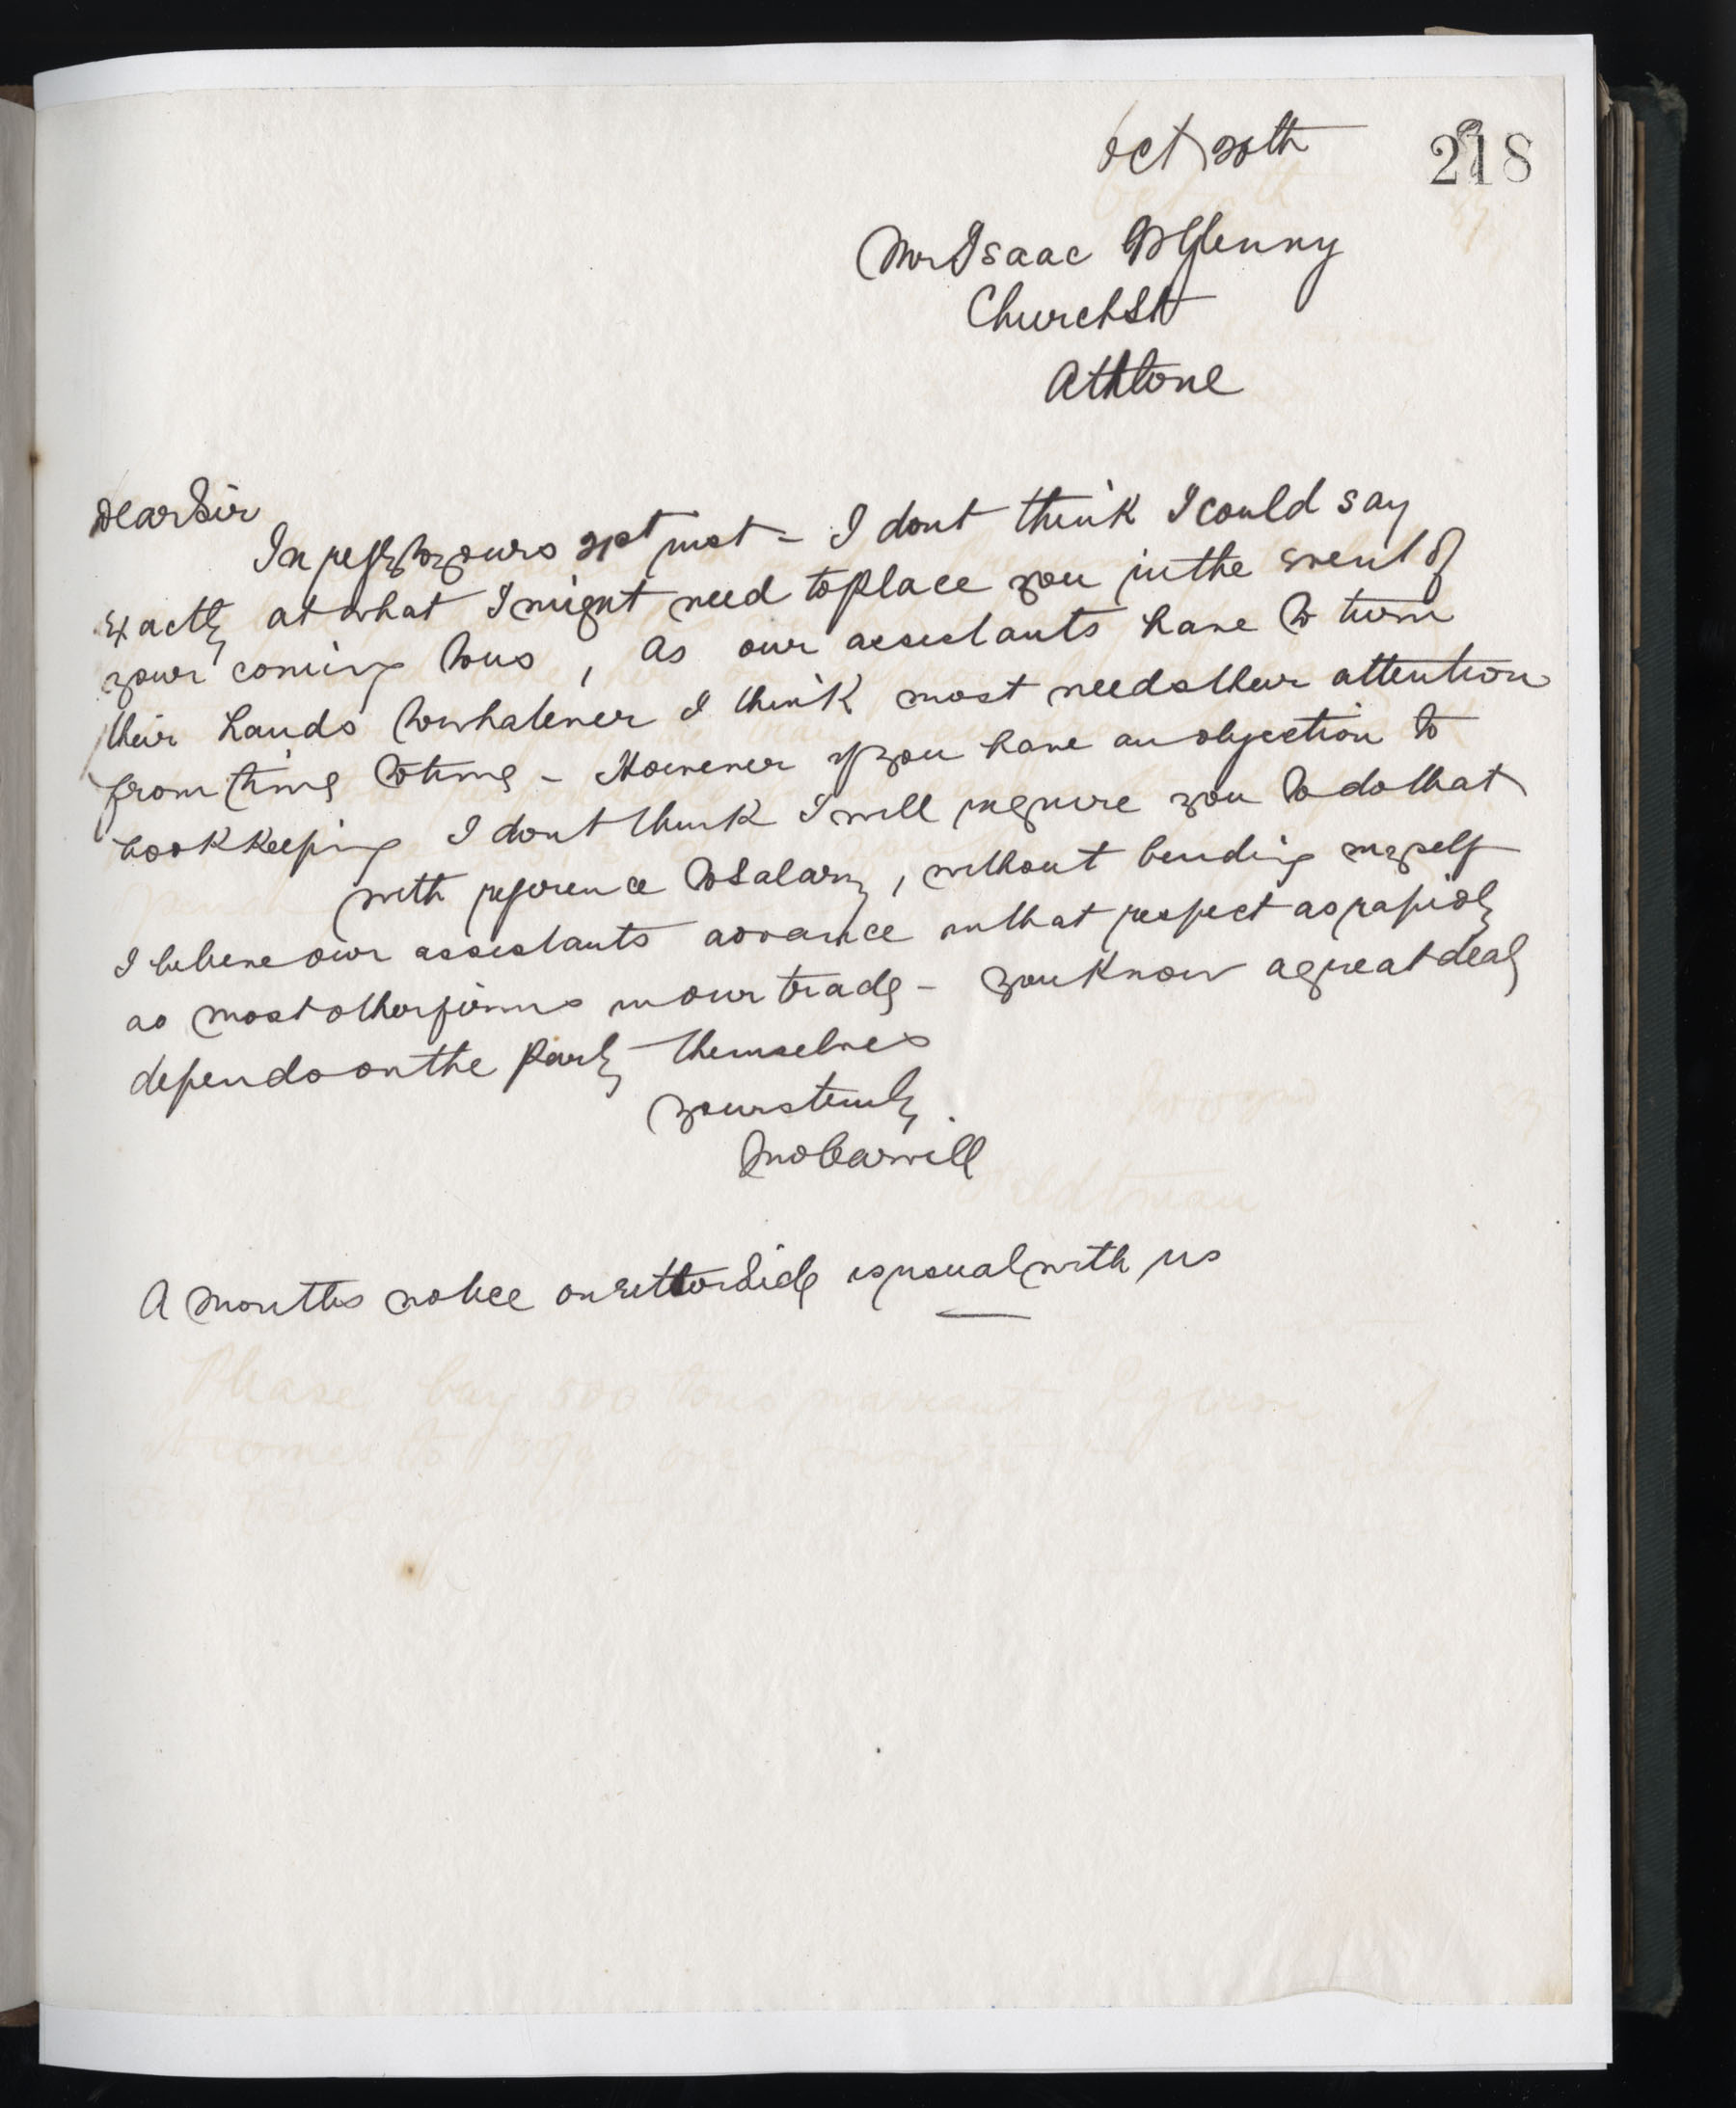 Oct 20th
218
Mr Isaac Glenny
Church St
Athlone
Dear Sir
In reply to yours 21st inst - I dont think I could say
exactly at what I might need to place you in the event of
your coming to us, as our assistants have to turn
their hands to whatever I think most needs their attention
from time to time - However if you have an objection to
bookkeeping I dont think I will require you to do that
with reference to Salary, without binding myself
I believe our assistants advance in that respect as rapidly
as most other firms in our trade - you know a great deal
depends on the party themselves
yours truly
A months notice on either side is usual with us
Please buy 500 tons warrants